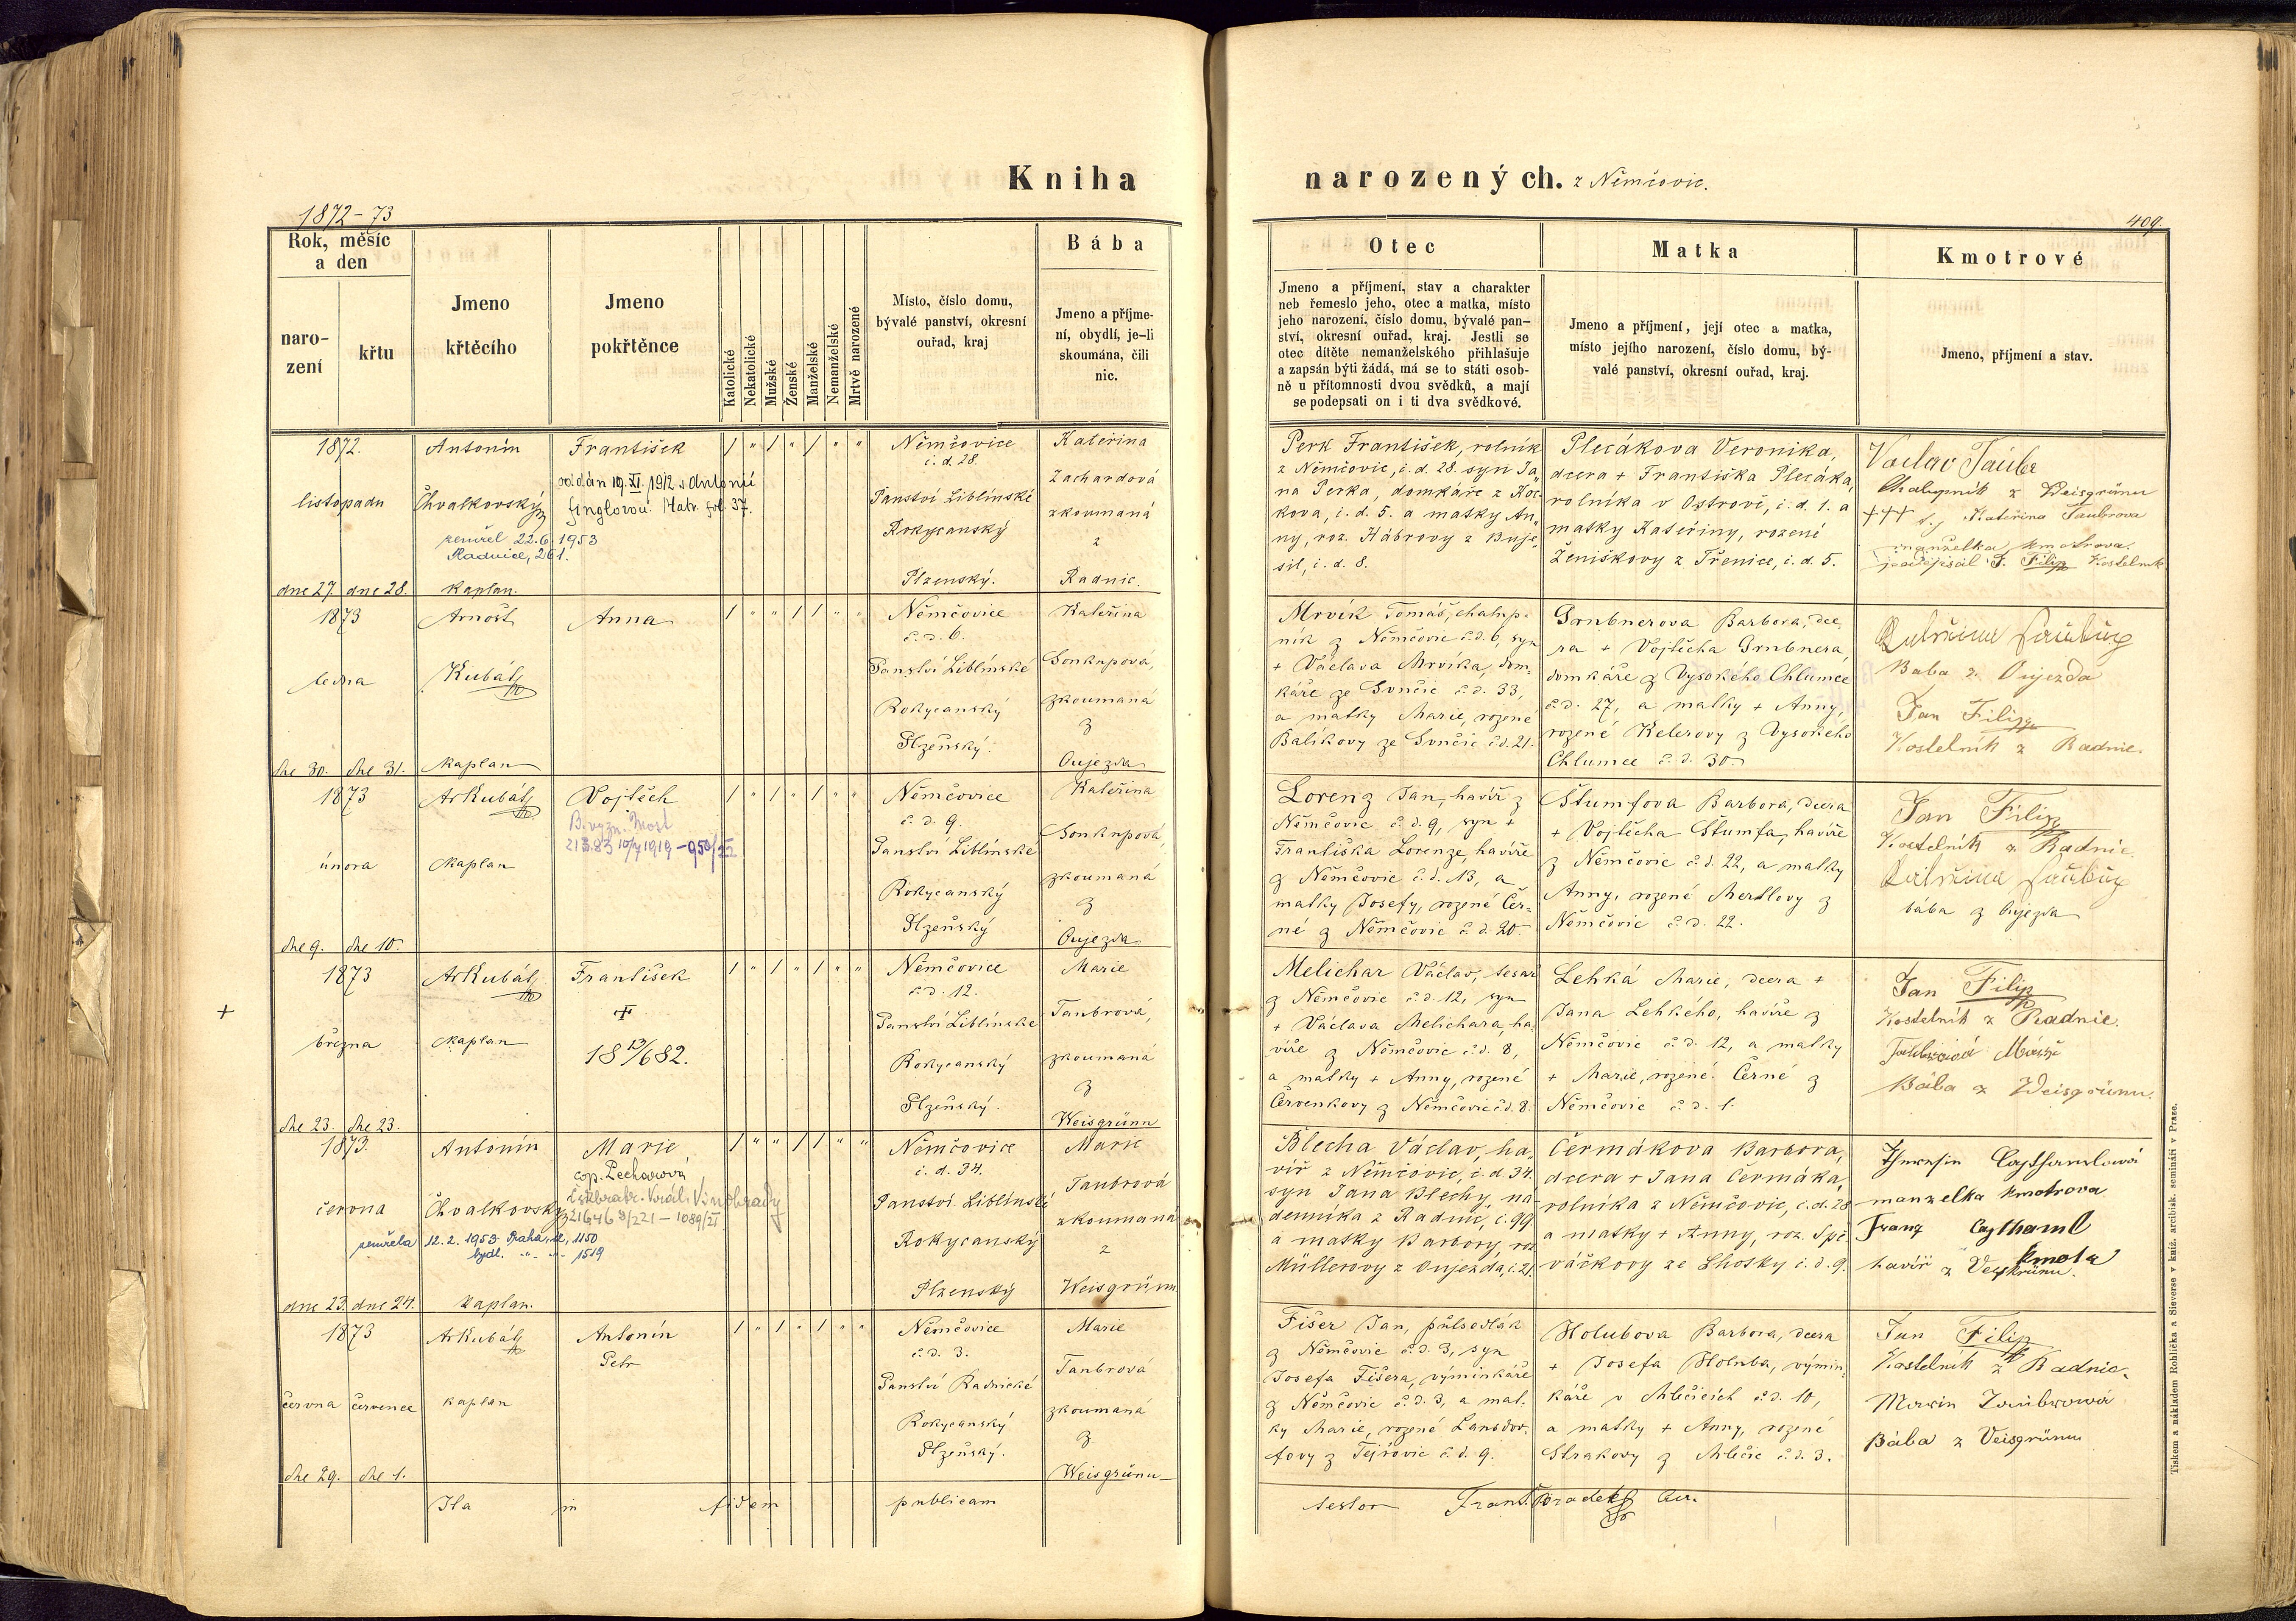 Kniha narozených. z Němčovic.
1872-73
409.
Rok, měsíc
a den
naro-
zení
křtu
Jmeno
křtěcího
Jmeno
pokřtěnce
Katolické
Nekatolické
Mužské
Ženské
Manželské
Nemanželské
Mrtvě narozené
Místo, číslo domu,
bývalé panství, okresní
ouřad, kraj
Bába
Jmeno a příjme-
ní, obydlí, je-li
skoumána, čili
nic.
Otec
Jmeno a příjmení, stav a charakter
neb řemeslo jeho, otec a matka, místo
jeho narození, číslo domu, bývalé pan-
ství, okresní ouřad, kraj. Jestli se
otec dítěte nemanželského přihlašuje
a zapsán býti žádá, má se to státi osob-
ně u přítomnosti dvou svědků, a mají
se podepsati on i ti dva svědkové.
Matka
Jmeno a příjmení, její otec a matka,
místo jejího narození, číslo domu, bý-
valé panství, okresní ouřad, kraj.
Kmotrové
Jmeno, příjmení a stav.
1872.
listopadu
dne 27. dne 28.
Antonín
Chvalkovský
zemřel 22.6.1953
Radnice, 261.
kaplan.
František
oddán 19. XI. 1912 s Antonií
Matr. fol. 37.
/ " / " / " "
Němčovice
č. d. 28.
Panství Liblínské
Rokycanský
Plzenský.
Kateřina
Zachardová
zkoumaná
z
Radnic.
Perk František, rolník
z Němčovic, č. d. 28. syn Ja-
na Perka, domkáře z Hoc-
kova, č. d. 5. a matky An-
ny, roz. Hábrovy z Buje-
sil, č. d. 8.
Plecákova Veronika,
dcera + Františka Plecáka,
rolníka v Ostrově, č. d. 1. a
matky Kateřiny, rozené
Ženíškovy z Třenice, č. d. 5.
Václav Taubr
Chalupník z Weisgrünu
+++ Kateřina Taubrova
manželka kmotrova.
podepsal J. Filip Kostelník
1873
ledna
dne 30. dne 31.
Arnošt
Kubát
kaplan
Anna
/ " " / / " "
Němčovice
č. d. 6.
Panství Liblínské
Rokycanský
Plzeňský.
Kateřina
Soukupová,
zkoumaná
z
Oujezda
Mrvík Tomáš, chalup-
ník z Němčovic č. d. 6, syn
+ Václava Mrvíka, dom-
káře ze Svnčic č. d. 33,
a matky Marie, rozené
Balíkovy ze Svnčic č. d. 21.
Grubnerova Barbora, dce-
ra + Vojtěcha Grubnera,
domkáře z Vysokého Chlumce
č. d. 27, a matky + Anny,
rozené Kelerovy z Vysokého
Chlumce č. d. 30.
Baba z Oujezda
Jan Filip
Kostelník z Radnic.
1873
února
dne 9. dne 10.
ArKubát
kaplan
Vojtěch
21383 10/7 1919
/ " / " / " "
Němčovice
č. d. 9.
Panství Liblínské
Rokycanský
Plzeňský
Kateřina
Soukupová,
zkoumaná
z
Oujezda
Lorenz Jan, havíř z
Němčovic č. d. 9, syn +
Františka Lorenze, havíře
z Němčovic č. d. 13, a
matky Josefy, rozené Čer-
né z Němčovic č. d. 20.
Štumfova Barbora, dcera
+ Vojtěcha Štumfa, havíře
z Němčovic č. d. 22, a matky
Anny, rozené Mertlovy z
Němčovic č. d. 22.
Jan Filip
Kostelník z Radnic.
bába z Oujezda
1873
března
dne 23. dne 23.
+
ArKubát
kaplan
František
+
18 13/6 82.
/ " / " / " "
Němčovice
č. d. 12.
Panství Liblínské
Rokycanský
Plzeňský.
Marie
Taubrová,
zkoumaná
z
Weisgrünu
Melichar Václav, tesař
z Němčovic č. d. 12, syn
+ Václava Melichara, ha-
víře z Němčovic č. d. 8,
a matky + Anny, rozené
Červenkovy z Němčovic č. d. 8.
Lehká Marie, dcera +
Jana Lehkého, havíře z
Němčovic č. d. 12, a matky
+ Marie, rozené Černé z
Němčovic č. d. 1.
Jan Filip
Kostelník z Radnic.
Bába z Weisgrünu.
1873.
června
dne 23. dne 24.
Antonín
Chvalkovský
zemřela 12.2.1953 Praha, 1150
bydl. " " 1519
kaplan.
Marie
cop. Pechanová
Král. Vinohrady
/ " " / / " "
Němčovice
č. d. 34.
Panství Liblínské
Rokycanský
Plzenský
Marie
Taubrová
zkoumaná
z
Weisgrünu
Blecha Václav, ha-
víř z Němčovic, č. d. 34.
syn Jana Blechy, ná-
denníka z Radnic, č. 99
a matky Barbory, roz.
Müllerovy z Oujezda, č. 21.
Čermákova Barbora,
dcera + Jana Čermáka,
rolníka z Němčovic, č. d. 28
a matky + Anny, roz. Spě-
váčkovy ze Lhotky č. d. 9.
manželka kmotrova
Franz Caythaml
kmotr
havíř z Veisgrünu.
1873
června července
dne 29. dne 1.
ArKubát
kaplan
Antonín
Petr
/ " / " / " "
Němčovice
č. d. 3.
Panství Radnické
Rokycanský
Plzeňský.
Marie
Taubrová
zkoumaná
z
Weisgrünu
Fišer Jan, půlsedlák
z Němčovic č. d. 3, syn
Josefa Fišera, výminkáře
z Němčovic č. d. 3, a mat-
ky Marie, rozené Lansdor-
fovy z Tejřovic č. d. 9.
Holubova Barbora, dcera
+ Josefa Holuba, výmin-
káře v Mlečicích č. d. 10,
a matky + Anny, rozené
Strakovy z Mlečic č. d. 3.
Jan Filip
Kostelník z Radnic.
Bába z Veisgrünu
Ita in fidem publicam testor Frant. Hradek
Tiskem a nákladem Rohlíčka a Sieverse v kníž. arcibisk. semináři v Praze.